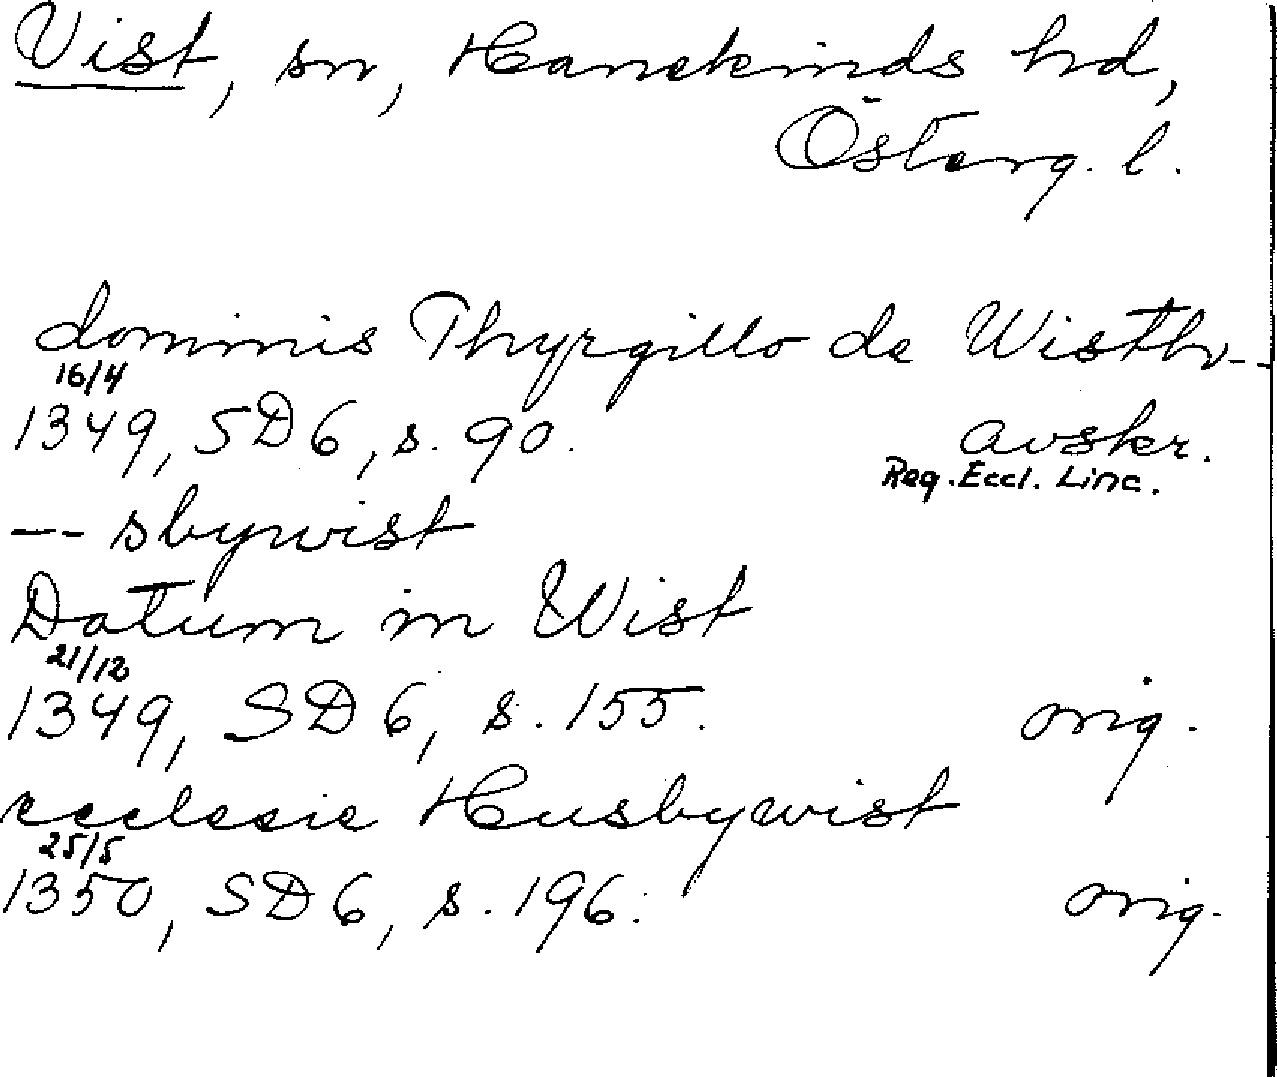 Vist, sn, Hanekinds hd,
Österg. l.
dominis Thyrgillo de Wisthr--
16/4
1349, SD 6, s. 90. avskr.
Reg. Eccl. Linc.
-- sbywist
Datum in Wist
21/12
1349, SD 6, s. 155. orig.
ecclesie Husbywist
25/5
1350, SD 6, s. 196. orig.